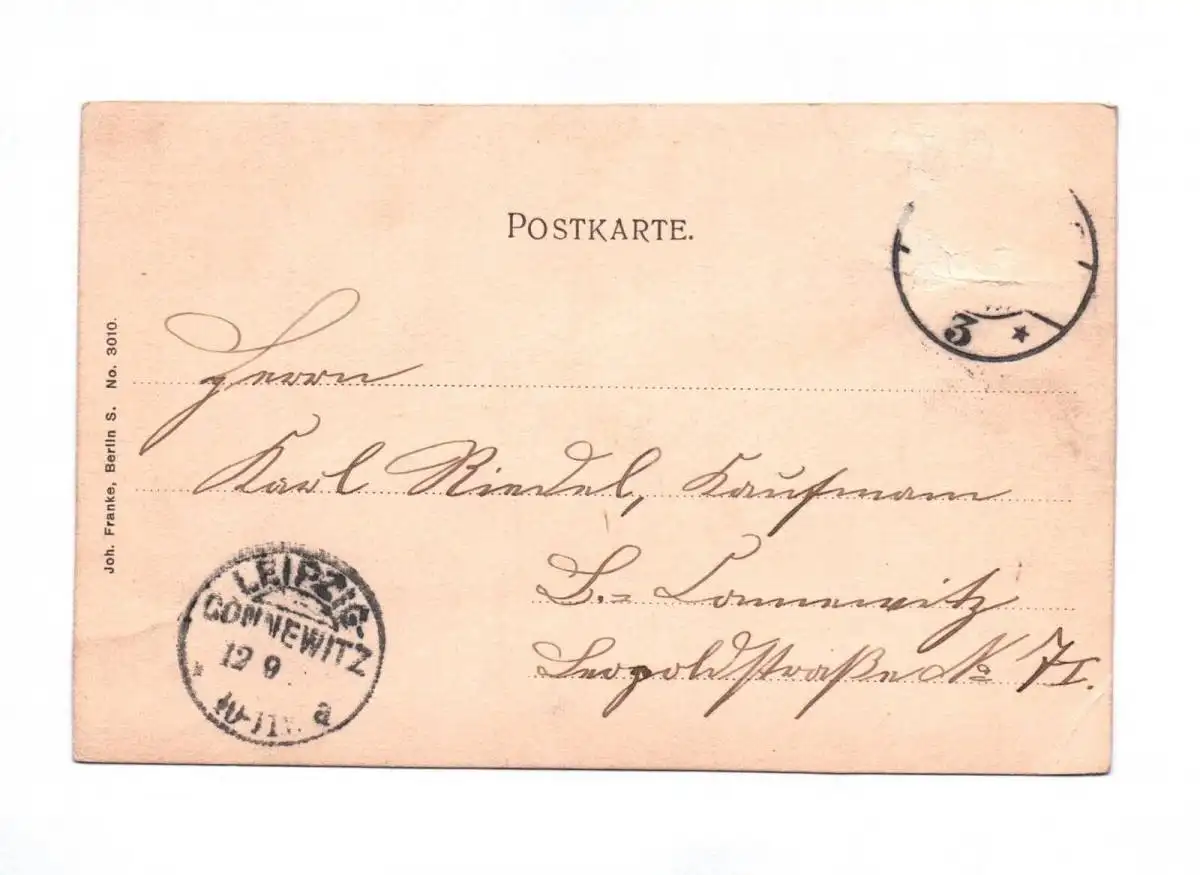 POSTKARTE.
Joh. Franke, Berlin S. No. 3010.
3 *
Herrn
Karl Riedel, Kaufmann
L.= Connewitz
Leopoldstraße No 7 I.
LEIPZIG-
CONNEWITZ
12 9
* 10-11V. a